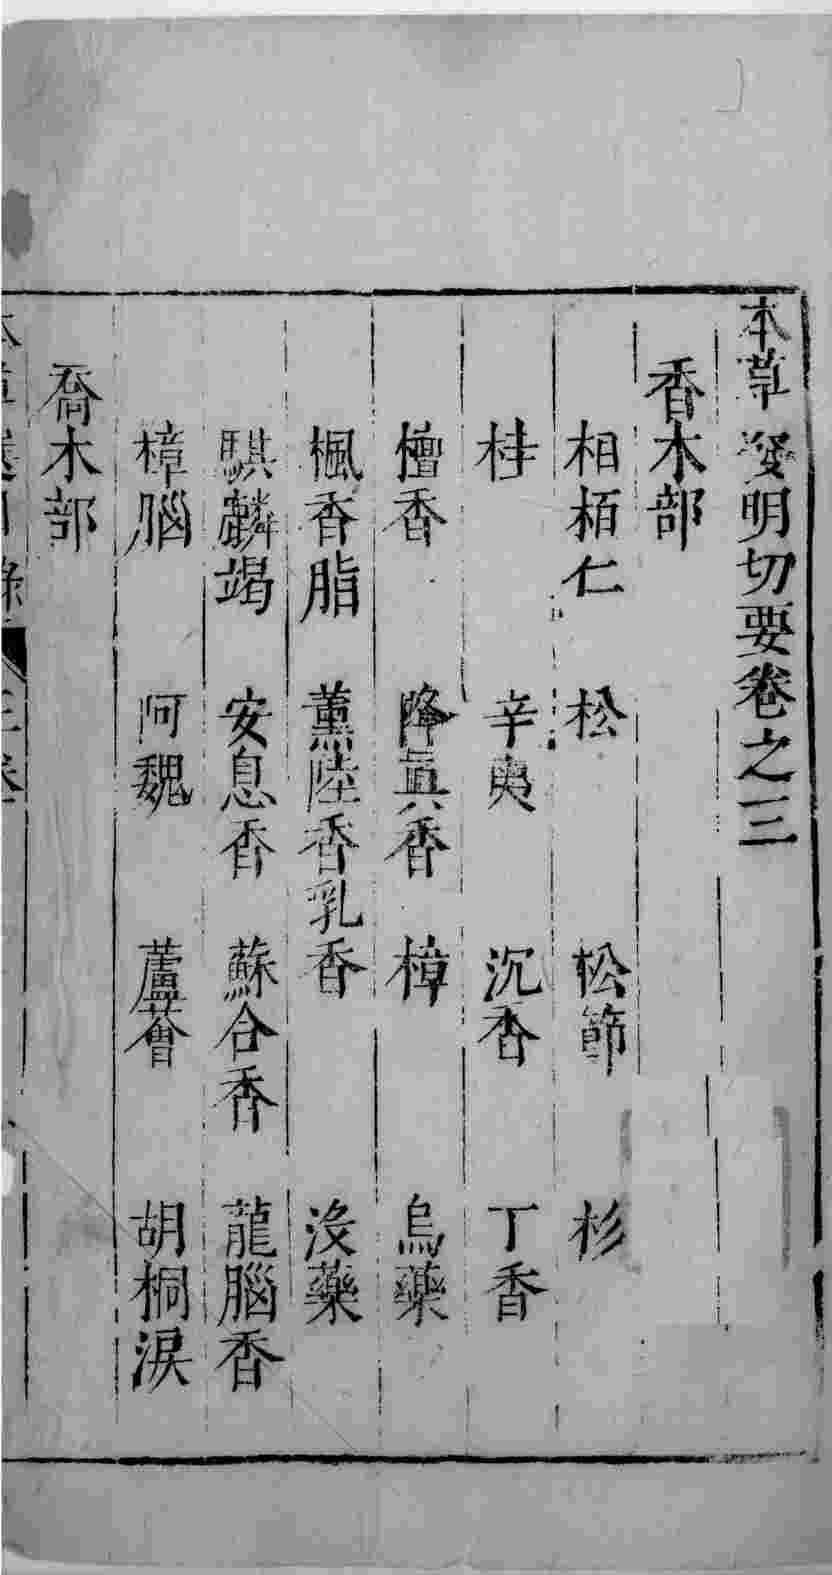 本草發明切要卷之三
香木部
相栢仁 松 松節 杉
桂 辛夷 沉香 丁香
檀香 降真香 樟 烏藥
楓香脂 薰陸香乳香 沒藥
騏麟竭 安息香 蘇合香 龍腦香
樟腦 阿魏 蘆薈 胡桐淚
喬木部